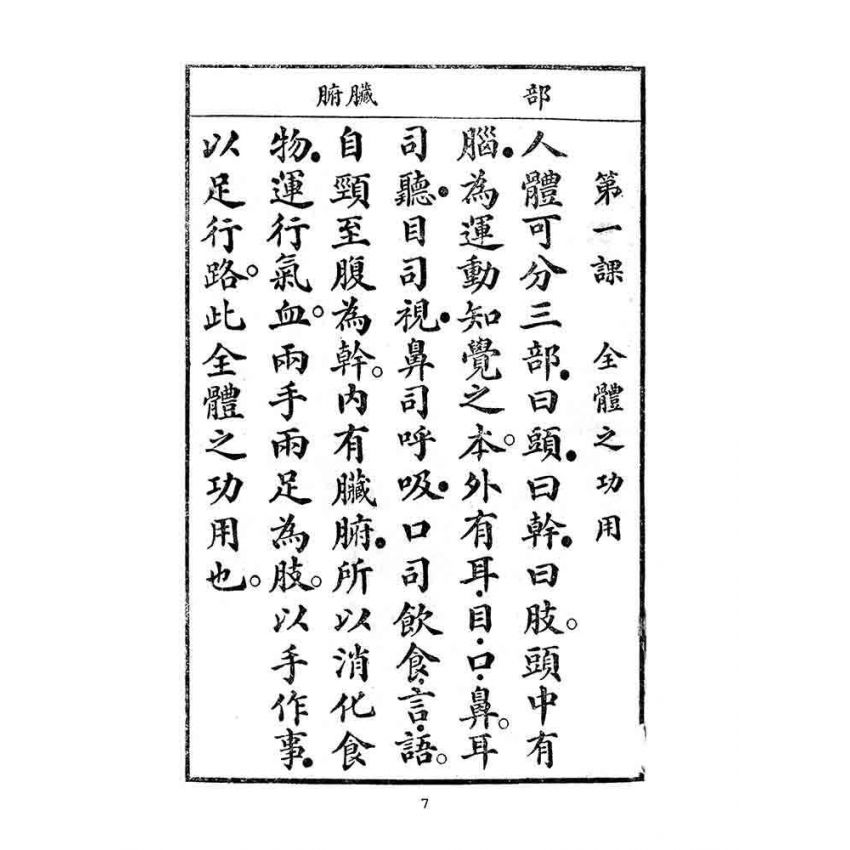 部　臟腑
第一課　全體之功用
人體可分三部．曰頭．曰幹．曰肢。頭中有
腦．為運動知覺之本。外有耳．目．口．鼻。耳
司聽．目司視．鼻司呼吸．口司飲食．言．語。
自頸至腹為幹。內有臟腑．所以消化食
物．運行氣血。兩手兩足為肢。以手作事．
以足行路。此全體之功用也。
7